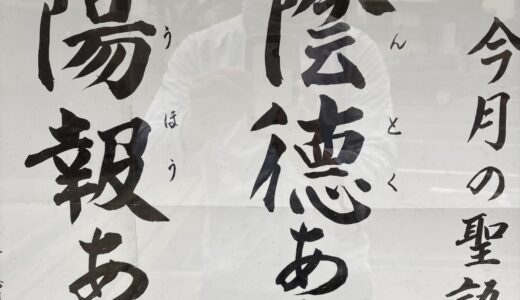 今月の聖語
陰徳あ
んとく
陽報あ
うほう